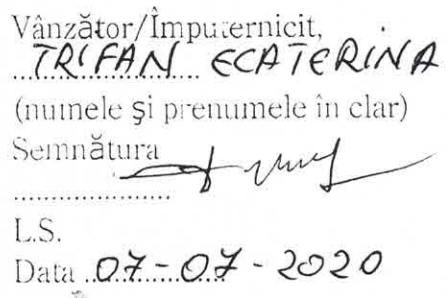 Vânzător/Împuternicit,
TRIFAN ECATERINA
(numele şi prenumele în clar)
Semnătura
L.S.
Data 07-07-2020